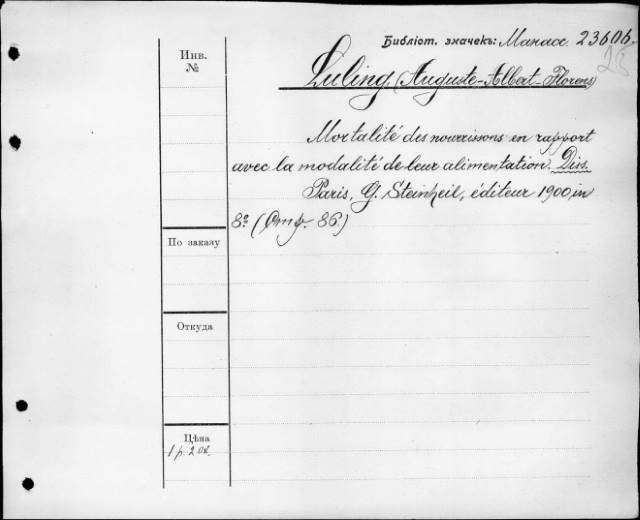 Библіот. значекъ: Манасс. 23606.
Инв. №
Luling (Auguste-Albert-Florens)
Mortalité des nourissons en rapport
avec la modalité de leur alimentation. Diss.
Paris, G. Steinheil, éditeur 1900, in
8º (Стр. 86.)
По заказу
Откуда
Цѣна
1 р. 20к.